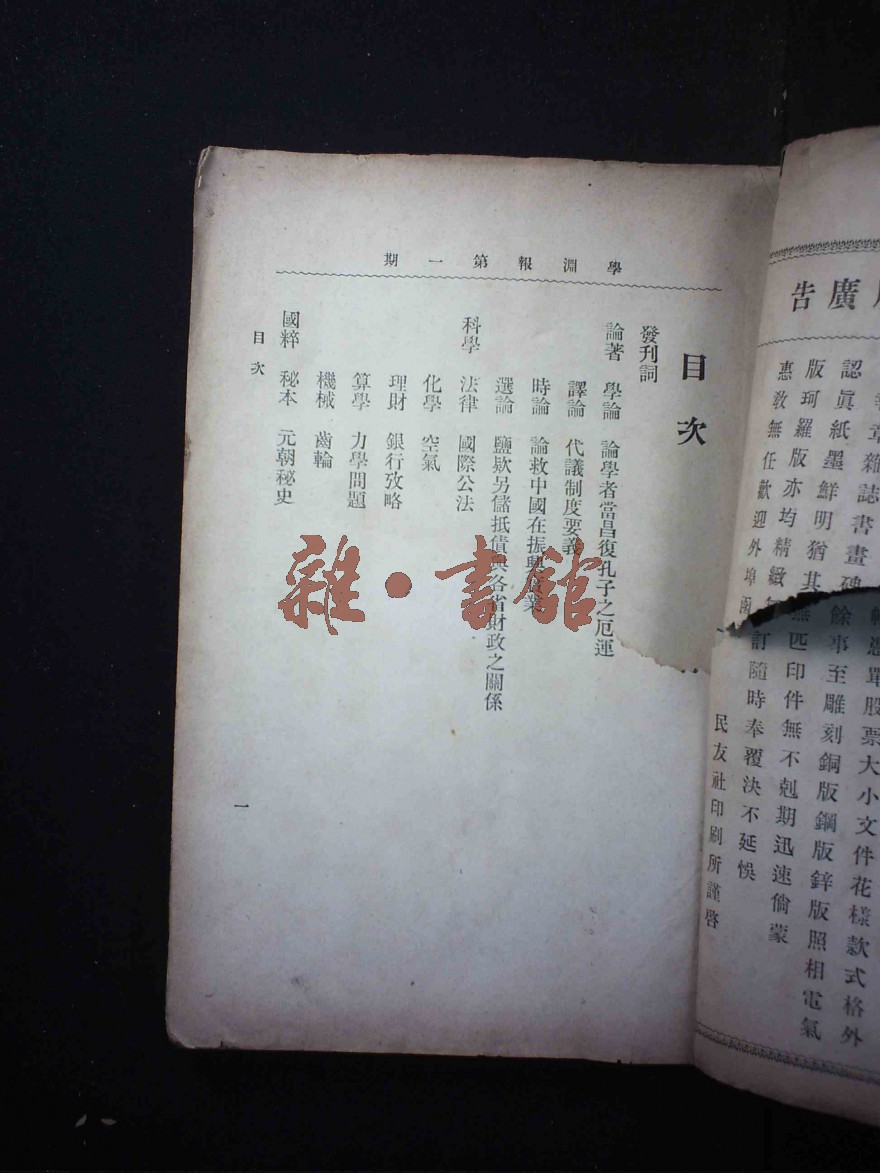 學淵報第一期
目次
發刊詞
論著 學論 論學者當昌復孔子之厄運
譯論 代議制度要義
時論 論救中國在振興實業
選論 鹽欵另儲抵債與各省財政之關係
科學 法律 國際公法
化學 空氣
理財 銀行攷略
算學 力學問題
機械 齒輪
國粹 秘本 元朝秘史
目次
一
雜·書館
廣告
章雜誌書畫碑
股票大小文件花樣款式格外
認眞紙墨鮮明猶其餘事至雕刻銅版鋼版鋅版照相電氣
版珂羅版亦均精緻無匹印件無不剋期迅速倘蒙
惠敎無任歡迎外埠函訂隨時奉覆決不延悞
民友社印刷所謹啓